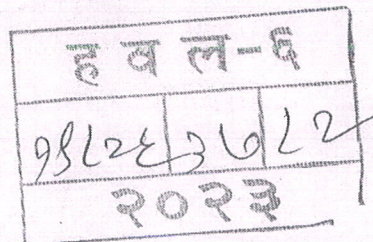 ह व ल-६
१९८२६ ३७ ८२
२०२३